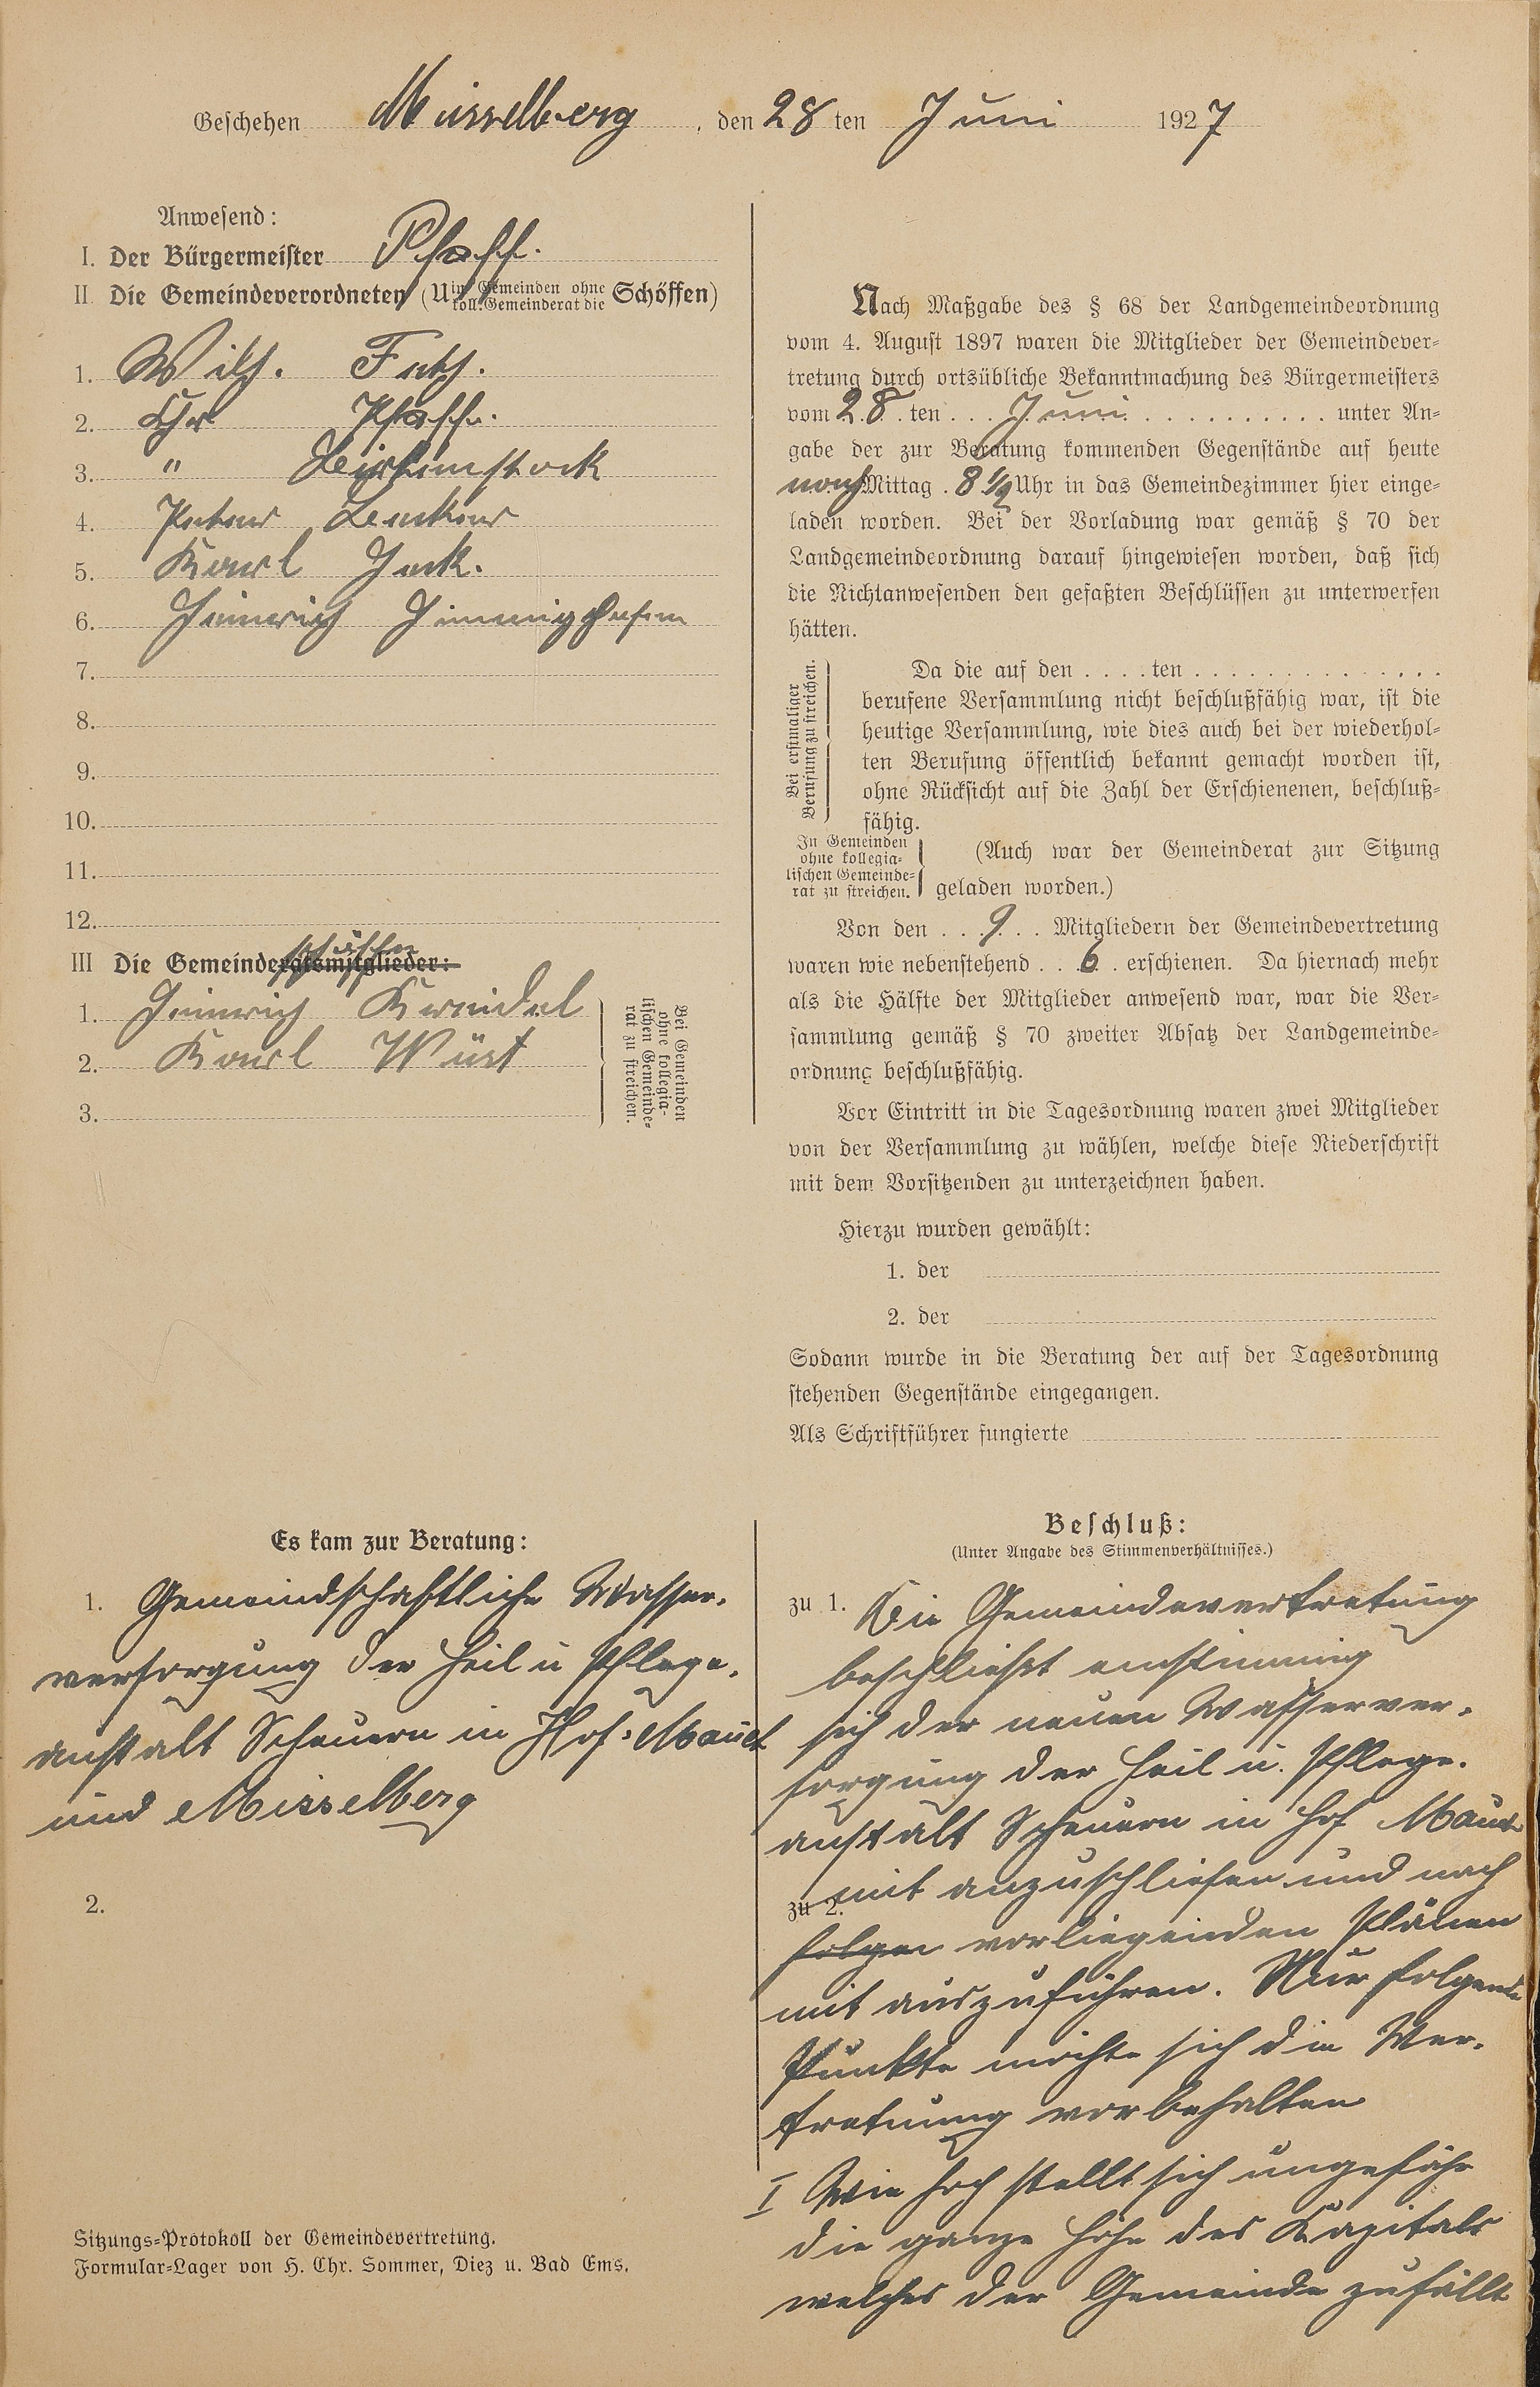 Geschehen Misselberg, den 28 ten Juni 1927
Anwesend:
I. Der Bürgermeister Pfaff.
II Die Gemeindeverordneten (U in Gemeinden ohne koll. Gemeinderat die Schöffen)
1. Wilh.
2. Chr Pfaff.
3. " Birkenstock
4. Peter
5. Karl
6. Heinrich Himmighofen
7.
8.
9.
10.
11.
12.
III Die Gemeinderatsmitglieder: schöffen
1. Heinrich Kreidel
2. Karl Würt
3.
Bei Gemeinden
ohne kollegia-
lischen Gemeinde-
rat zu streichen.
Nach Maßgabe des § 68 der Landgemeindeordnung
vom 4. August 1897 waren die Mitglieder der Gemeindever-
tretung durch ortsübliche Bekanntmachung des Bürgermeisters
vom 28. ten Juni unter An-
gabe der zur Beratung kommenden Gegenstände auf heute
nach Mittag 8 1/2 Uhr in das Gemeindezimmer hier einge-
laden worden. Bei der Vorladung war gemäß § 70 der
Landgemeindeordnung darauf hingewiesen worden, daß sich
die Nichtanwesenden den gefaßten Beschlüssen zu unterwerfen
hätten.
Bei erstmaliger
Berufung zu streichen.
Da die auf den . . . . ten . . . . . . . . . . . . . .
berufene Versammlung nicht beschlußfähig war, ist die
heutige Versammlung, wie dies auch bei der wiederhol-
ten Berufung öffentlich bekannt gemacht worden ist,
ohne Rücksicht auf die Zahl der Erschienenen, beschluß-
fähig.
In Gemeinden
ohne kollegia-
lischen Gemeinde-
rat zu streichen.
(Auch war der Gemeinderat zur Sitzung
geladen worden.)
Von den . . 9 . . Mitgliedern der Gemeindevertretung
waren wie nebenstehend . . 6 . erschienen. Da hiernach mehr
als die Hälfte der Mitglieder anwesend war, war die Ver-
sammlung gemäß § 70 zweiter Absatz der Landgemeinde-
ordnung beschlußfähig.
Vor Eintritt in die Tagesordnung waren zwei Mitglieder
von der Versammlung zu wählen, welche diese Niederschrift
mit dem Vorsitzenden zu unterzeichnen haben.
Hierzu wurden gewählt:
1. der
2. der
Sodann wurde in die Beratung der auf der Tagesordnung
stehenden Gegenstände eingegangen.
Als Schriftführer fungierte
Es kam zur Beratung:
1. Gemeindschaftliche Wasser-
versorgung der Heil u Pflege-
anstalt Scheuern in Hof-Mauch
und Misselberg
2.
Sitzungs-Protokoll der Gemeindevertretung.
Formular-Lager von H. Chr. Sommer, Diez u. Bad Ems.
Beschluß:
(Unter Angabe des Stimmenverhältnisses.)
zu 1. Die Gemeindevertretung
beschließt einstimmig
sich der neuen Wasserver-
sorgung der Heil u. Pflege-
anstalt Scheuern in Hof Mauch
zu 2. mit anzuschließen und nach
folgen vorliegenden Plänen
mit auszuführen. Nur folgende
Punkte möchte sich die Ver-
tretuung vorbehalten
I Wie hoch stellt sich ungefähr
die ganze Höhe des Kapitals
welches der Gemeinde zufällt